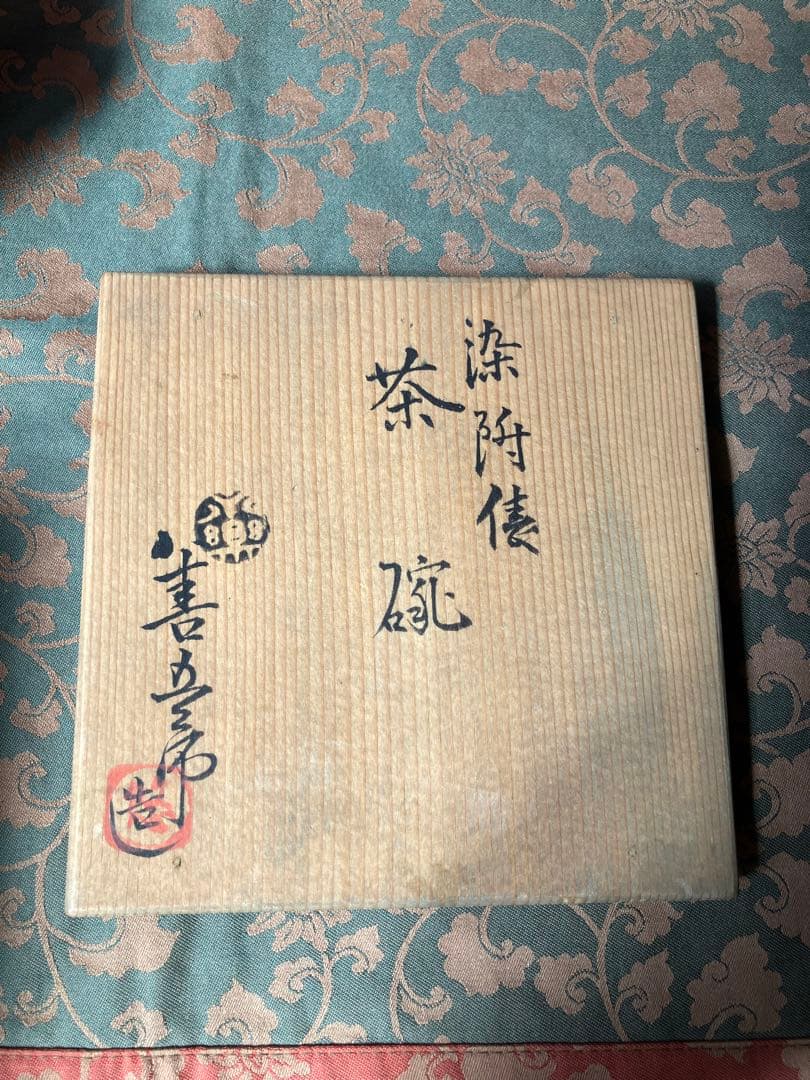 染附俵
茶碗
善五郎
造